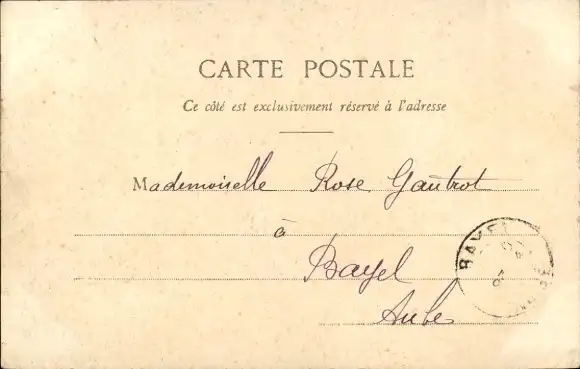 CARTE POSTALE
Ce côté est exclusivement réservé à l'adresse
Mademoiselle Rose Gautrot
à
Bayel
Aube
BAYEL